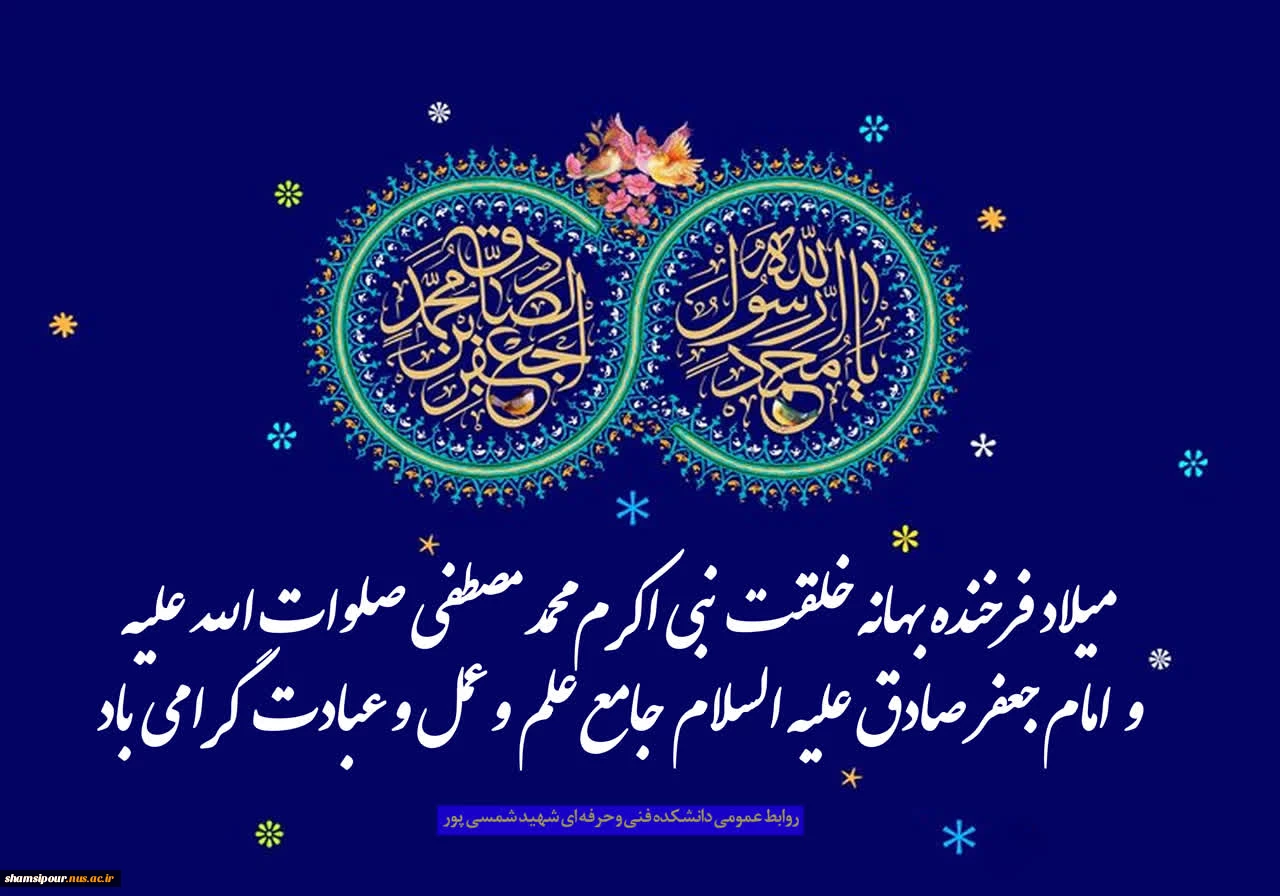 یا محمد
رسول الله
جعفر بن محمد
الصادق
میلاد فرخنده بهانه خلقت نبی اکرم محمد مصطفی صلوات الله علیه
و امام جعفر صادق علیه السلام جامع علم و عمل و عبادت گرامی باد
روابط عمومی دانشکده فنی و حرفه ای شهید شمسی پور
shamsipour.nus.ac.ir